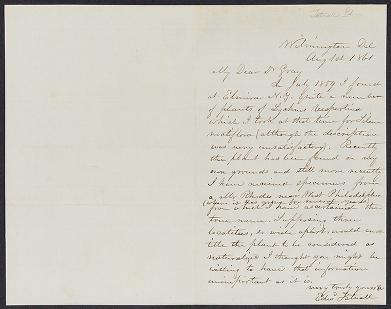 Tatnall Ed.
Wilmington Del
Aug 1st 1861
My Dear Dr Gray
In July 1859 I found
at Elmira N.Y. quite a number
of plants of Lychnis Vespertina
which I took at that time for Silene
noctiflora (although the description
was very unsatisfactory). Recently
the plant has been found on my
own grounds and still more recently
I have received specimens from
a Mr Rhodes near West Philadelphia
(where it has grown for several years)
from which I have ascertained the
true name. Supposing three
localities, so wide apart, would en-
title the plant to be considered as
naturalized I thought you might be
willing to have that information
unimportant as it is.
very truly yours &c
Edwd Tatnall